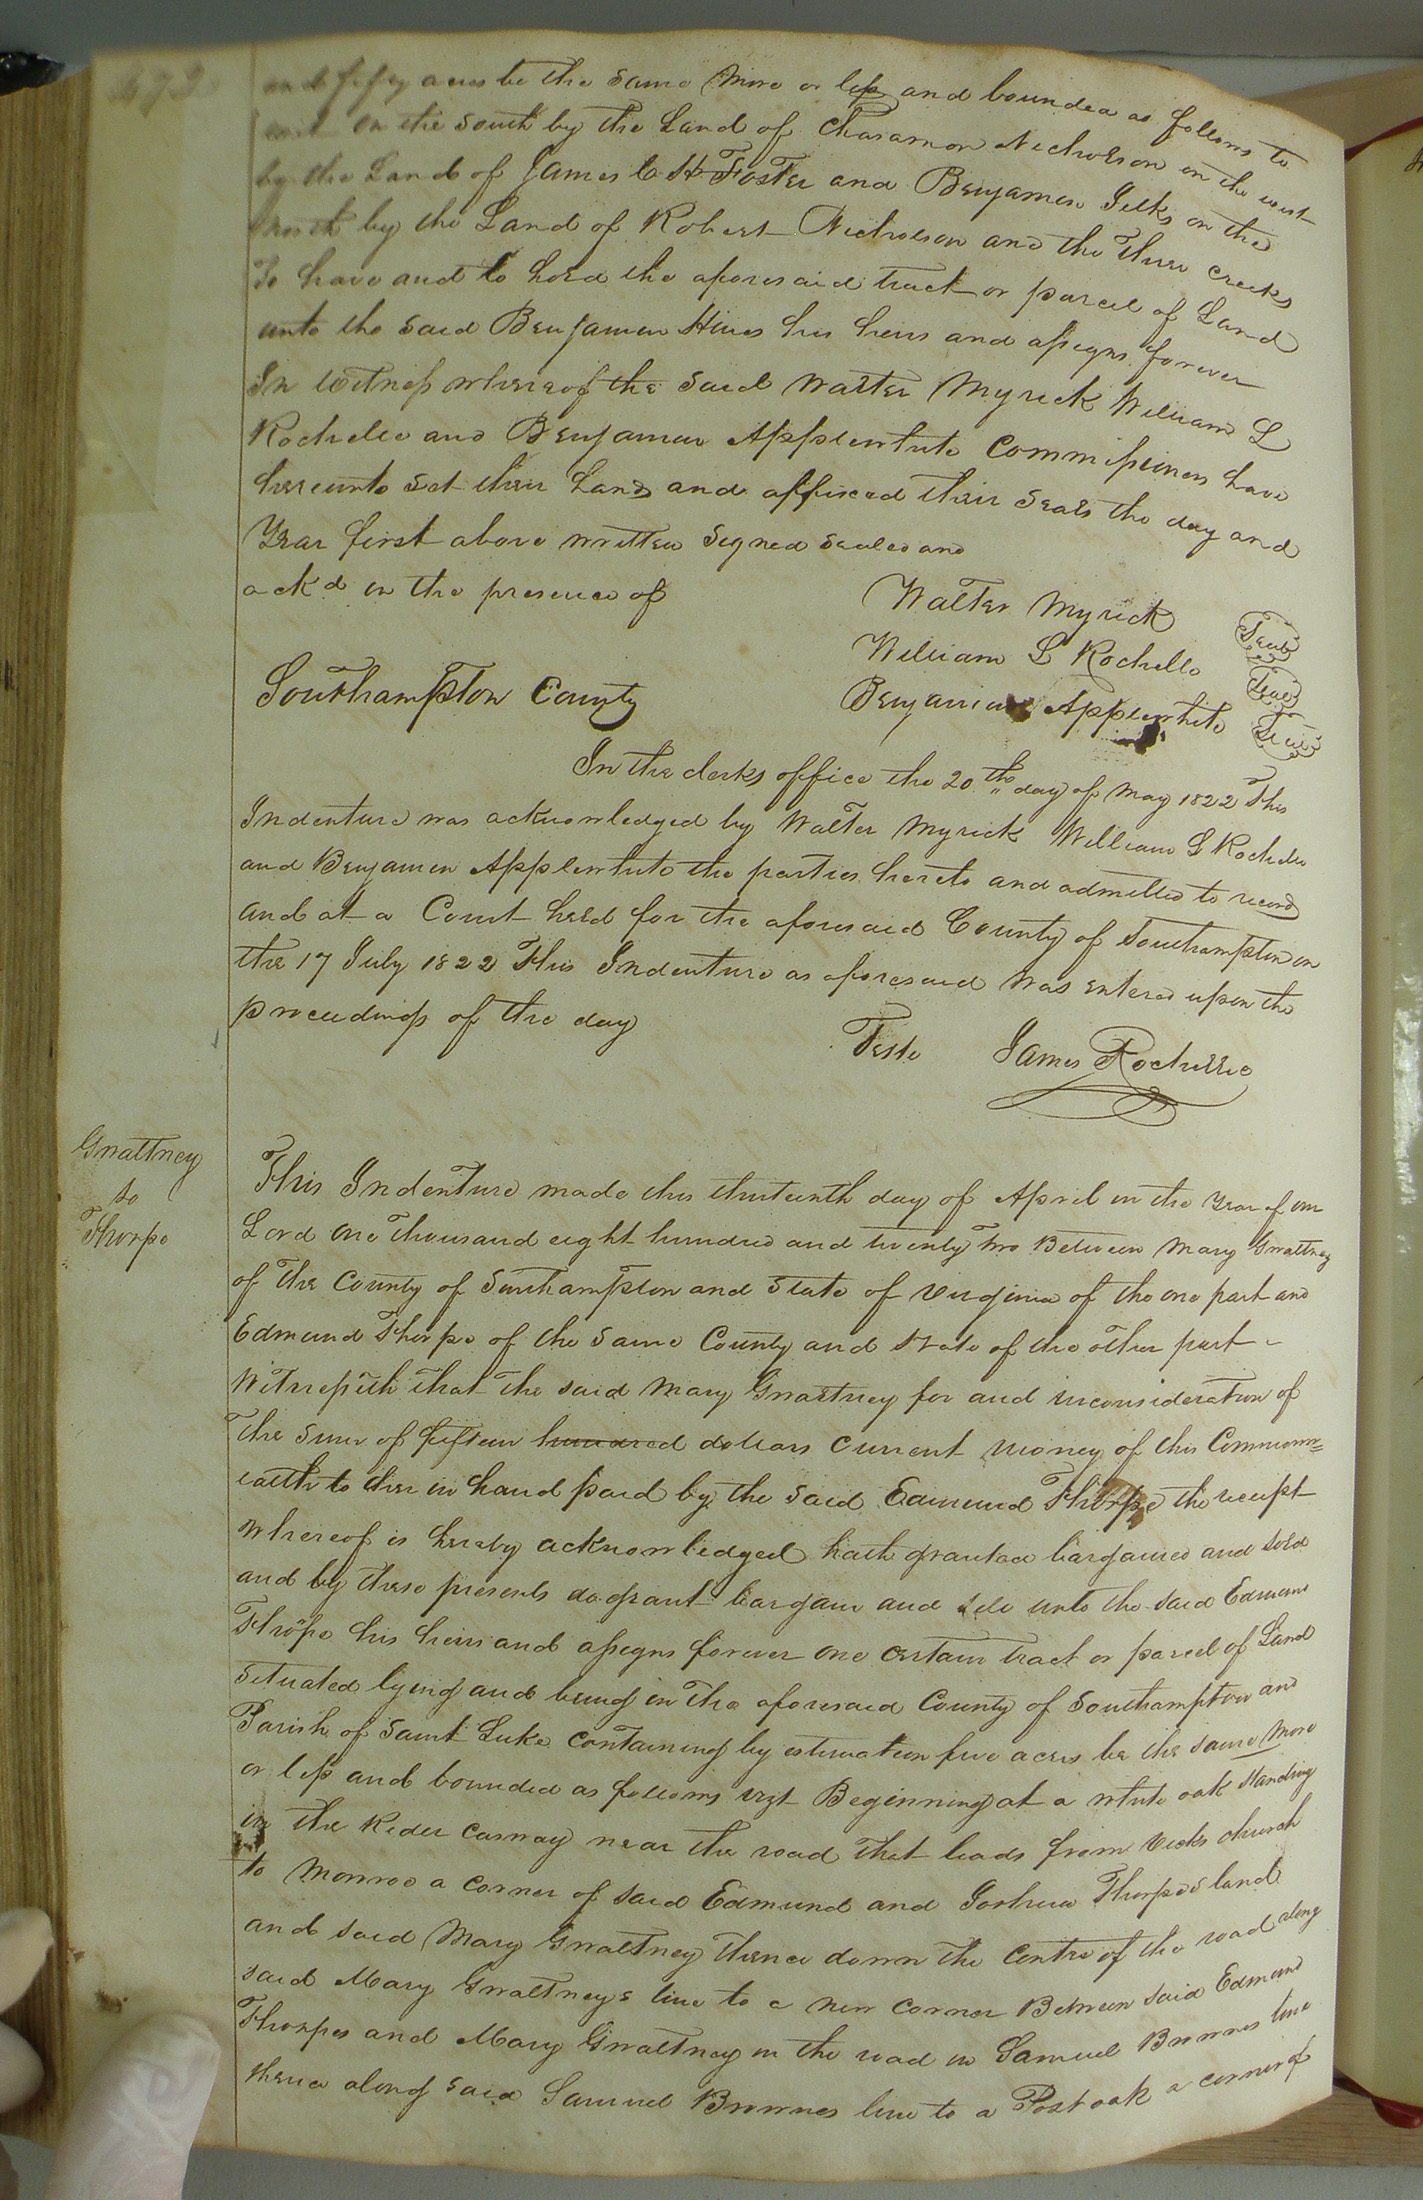 and fifty acres be the same more or less and bounded as follows to
wit on the south by the Land of Charamon Nicholson on the west
by the Land of James C H Foster and Benjamin Jelks on the
North by the Land of Robert Nicholson and the Three creeks
To have and to hold the aforesaid tract or parcel of Land
unto the said Benjamin Hines his heirs and assigns forever
In Witness whereof the said Walter Myrick William L
Rochelle and Benjamin Applewhite Commissioners have
hereunto set their hands and affixed their seals the day and
Year first above written Signed Sealed and
ack'd in the presence of
Walter Myrick Seal
William L Rochelle Seal
Benjamin Applewhite Seal
Southampton County
In the clerks office the 20th day of May 1822 This
Indenture was acknowledged by Walter Myrick William L Rochelle
and Benjamin Applewhite the parties hereto and admitted to record
and at a Court held for the aforesaid County of Southampton on
the 17 July 1822 This Indenture as aforesaid was entered upon the
proceedings of the day
Teste James Rochelle
Gwaltney
to
Thorpe
This Indenture made this thirteenth day of April in the Year of our
Lord one Thousand eight hundred and twenty two Between Mary Gwaltney
of the County of Southampton and State of Virginia of the one part and
Edmund Thorpe of the same County and State of the other part
Witnesseth that the said Mary Gwaltney for and in consideration of
The Sum of fifteen hundred dollars current money of this Commonw=
ealth to her in hand paid by the said Edmund Thorpe the receipt
whereof is hereby acknowledged hath granted bargained and sold
and by these presents do grant bargain and sele unto the said Edmund
Thorpe his heirs and assigns forever one certain tract or parcel of Land
Situated lying and being in the aforesaid County of Southampton and
Parish of Saint Luke containing by estimation five acres be the same more
or less and bounded as follows vizt Beginning at a white oak standing
in the Reder Carway near the road that leads from Vicks church
to Monroe a corner of said Edmund and Joshua Thorpes land
and said Mary Gwaltney thence down the centre of the road along
said Mary Gwaltneys line to a new corner Between said Edmund
Thorpes and Mary Gwaltney in the road in Samuel Brownes line
thence along said Samuel Brownes line to a Post oak a corner of